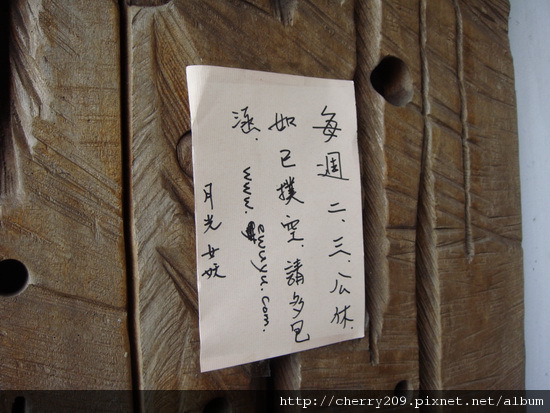 每週二、三、公休.
如已撲空.請多包
涵.
www.ewuyu.com.
月光女妖
http://cherry209.pixnet.net/album